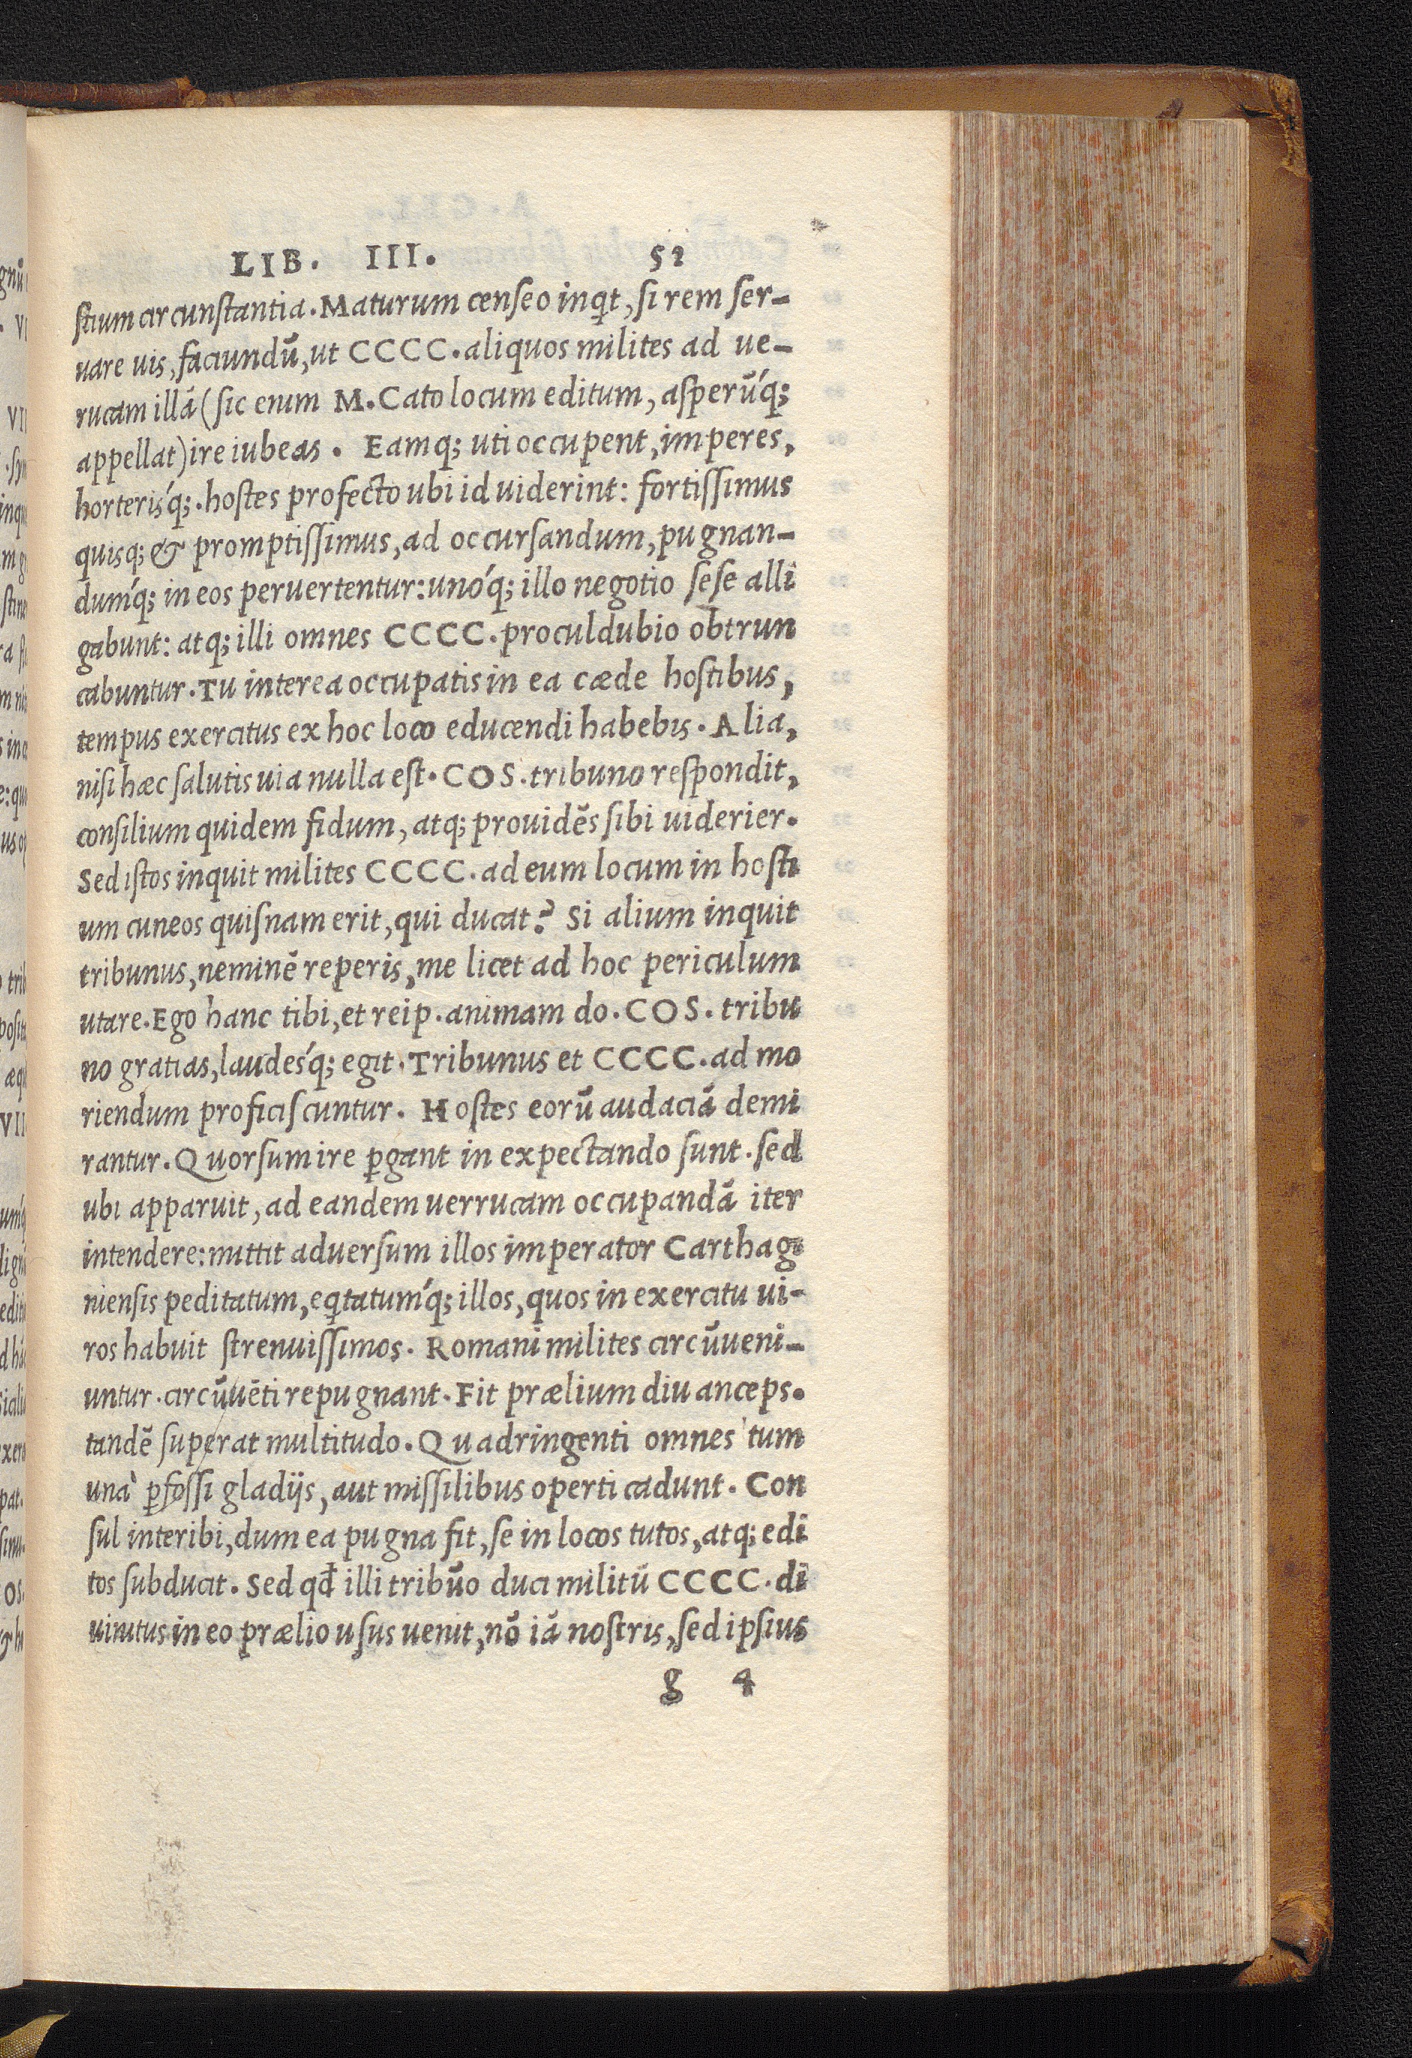 LIB. III. 52
stium circunstantia. Maturum censeo inqͥt, si rem ser-
uare uis, faciundū, ut CCCC. aliquos milites ad ue-
rucam illā (sic enim M. Cato locum editum, asperū́q;
appellat) ire iubeas. Eamq; uti occupent, imperes,
horterisq́;. hostes profecto ubi id uiderint: fortissimus
quisq; & promptissimus, ad occursandum, pugnan-
dumq́; in eos peruertentur: unoq́; illo negotio sese alli
gabunt: atq; illi omnes CCCC. proculdubio obtrun
cabuntur. Tu interea occupatis in ea cæde hostibus,
tempus exercitus ex hoc loco educendi habebis. Alia,
nisi hæc salutis uia nulla est. COS. tribuno respondit,
consilium quidem fidum, atq; prouidēs sibi uiderier.
Sed istos inquit milites CCCC. ad eum locum in hosti
um cuneos quisnam erit, qui ducat? Si alium inquit
tribunus, neminē reperis, me licet ad hoc periculum
utare. Ego hanc tibi, et reip. animam do. COS. tribu
no gratias, laudesq́; egit. Tribunus et CCCC. ad mo
riendum proficiscuntur. Hostes eorū audaciā demi
rantur. Quorsum ire ꝑgant in expectando sunt. sed
ubi apparuit, ad eandem uerrucam occupandā iter
intendere: mittit aduersum illos imperator Carthagi
niensis peditatum, eqͥtatumq́; illos, quos in exercitu ui-
ros habuit strenuissimos. Romani milites circūueni-
untur. circūuēti repugnant. Fit prælium diu anceps.
tandē superat multitudo. Quadringenti omnes tum
unà ꝑfossi gladijs, aut missilibus operti cadunt. Con
sul interibi, dum ea pugna fit, se in locos tutos, atq; edi
tos subducit. Sed qđ illi tribūo duci militū CCCC. di
uinitus in eo prælio usus uenit, nō iā nostris, sed ipsius
g 4